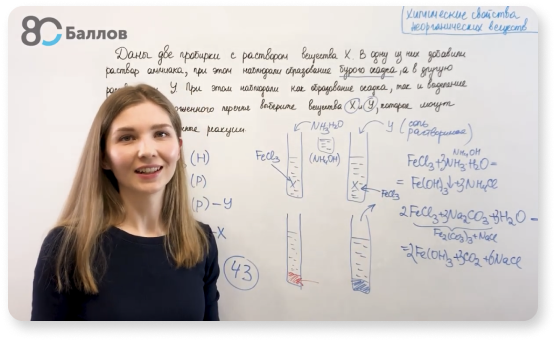 80 Баллов
Химические свойства
неорганических веществ
Даны две пробирки с раствором вещества X. В одну из них добавили
раствор аммиака, при этом наблюдали образование бурого осадка, а в другую
Y. При этом наблюдали как образование осадка, так и выделение
перечня выберите вещества X и Y, которые могут
реакции.
(Н)
(Р)
(Р) – Y
– X
43
NH3·H2O
(NH4OH)
FeCl3
X
Y (соль
растворимая)
X
FeCl3
NH4OH
FeCl3+3NH3·H2O=
= Fe(OH)3↓+3NH4Cl
2FeCl3+3Na2CO3+3H2O =
Fe2(CO3)3+NaCl
=2Fe(OH)3+3CO2+6NaCl